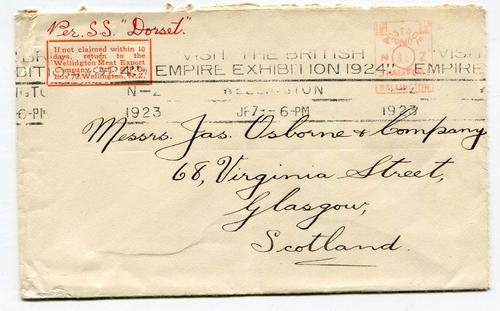 Per. S.S. "Dorset."
If not claimed within 10
days, return to the
Wellington Meat Export
Company,
Box 79, Wellington, N.Z.
VISIT THE BRITISH
EMPIRE EXHIBITION 1924
VISIT
EMPIRE
N-Z WELLINGTON
6-PM 1923 6-PM 1923
POSTAGE
N Z
HALFPENNY
WELLINGTON
Messrs. Jas. Osborne & Company
68, Virginia Street,
Glasgow,
Scotland.